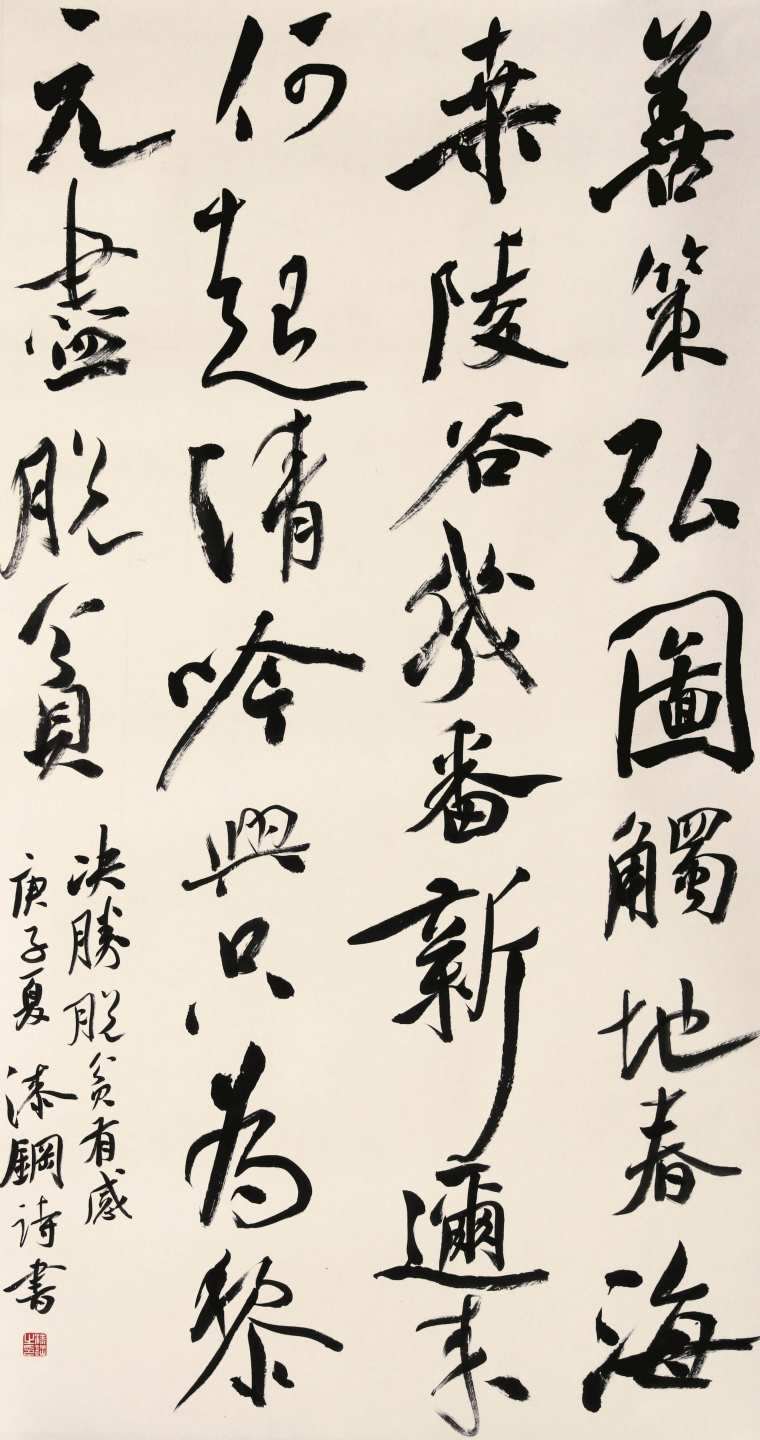 善策弘圖觸地春海
桒陵谷幾番新邇来
何起清吟興只為黎
元盡脫貧
决勝脫貧有感
庚子夏 漆鋼詩書